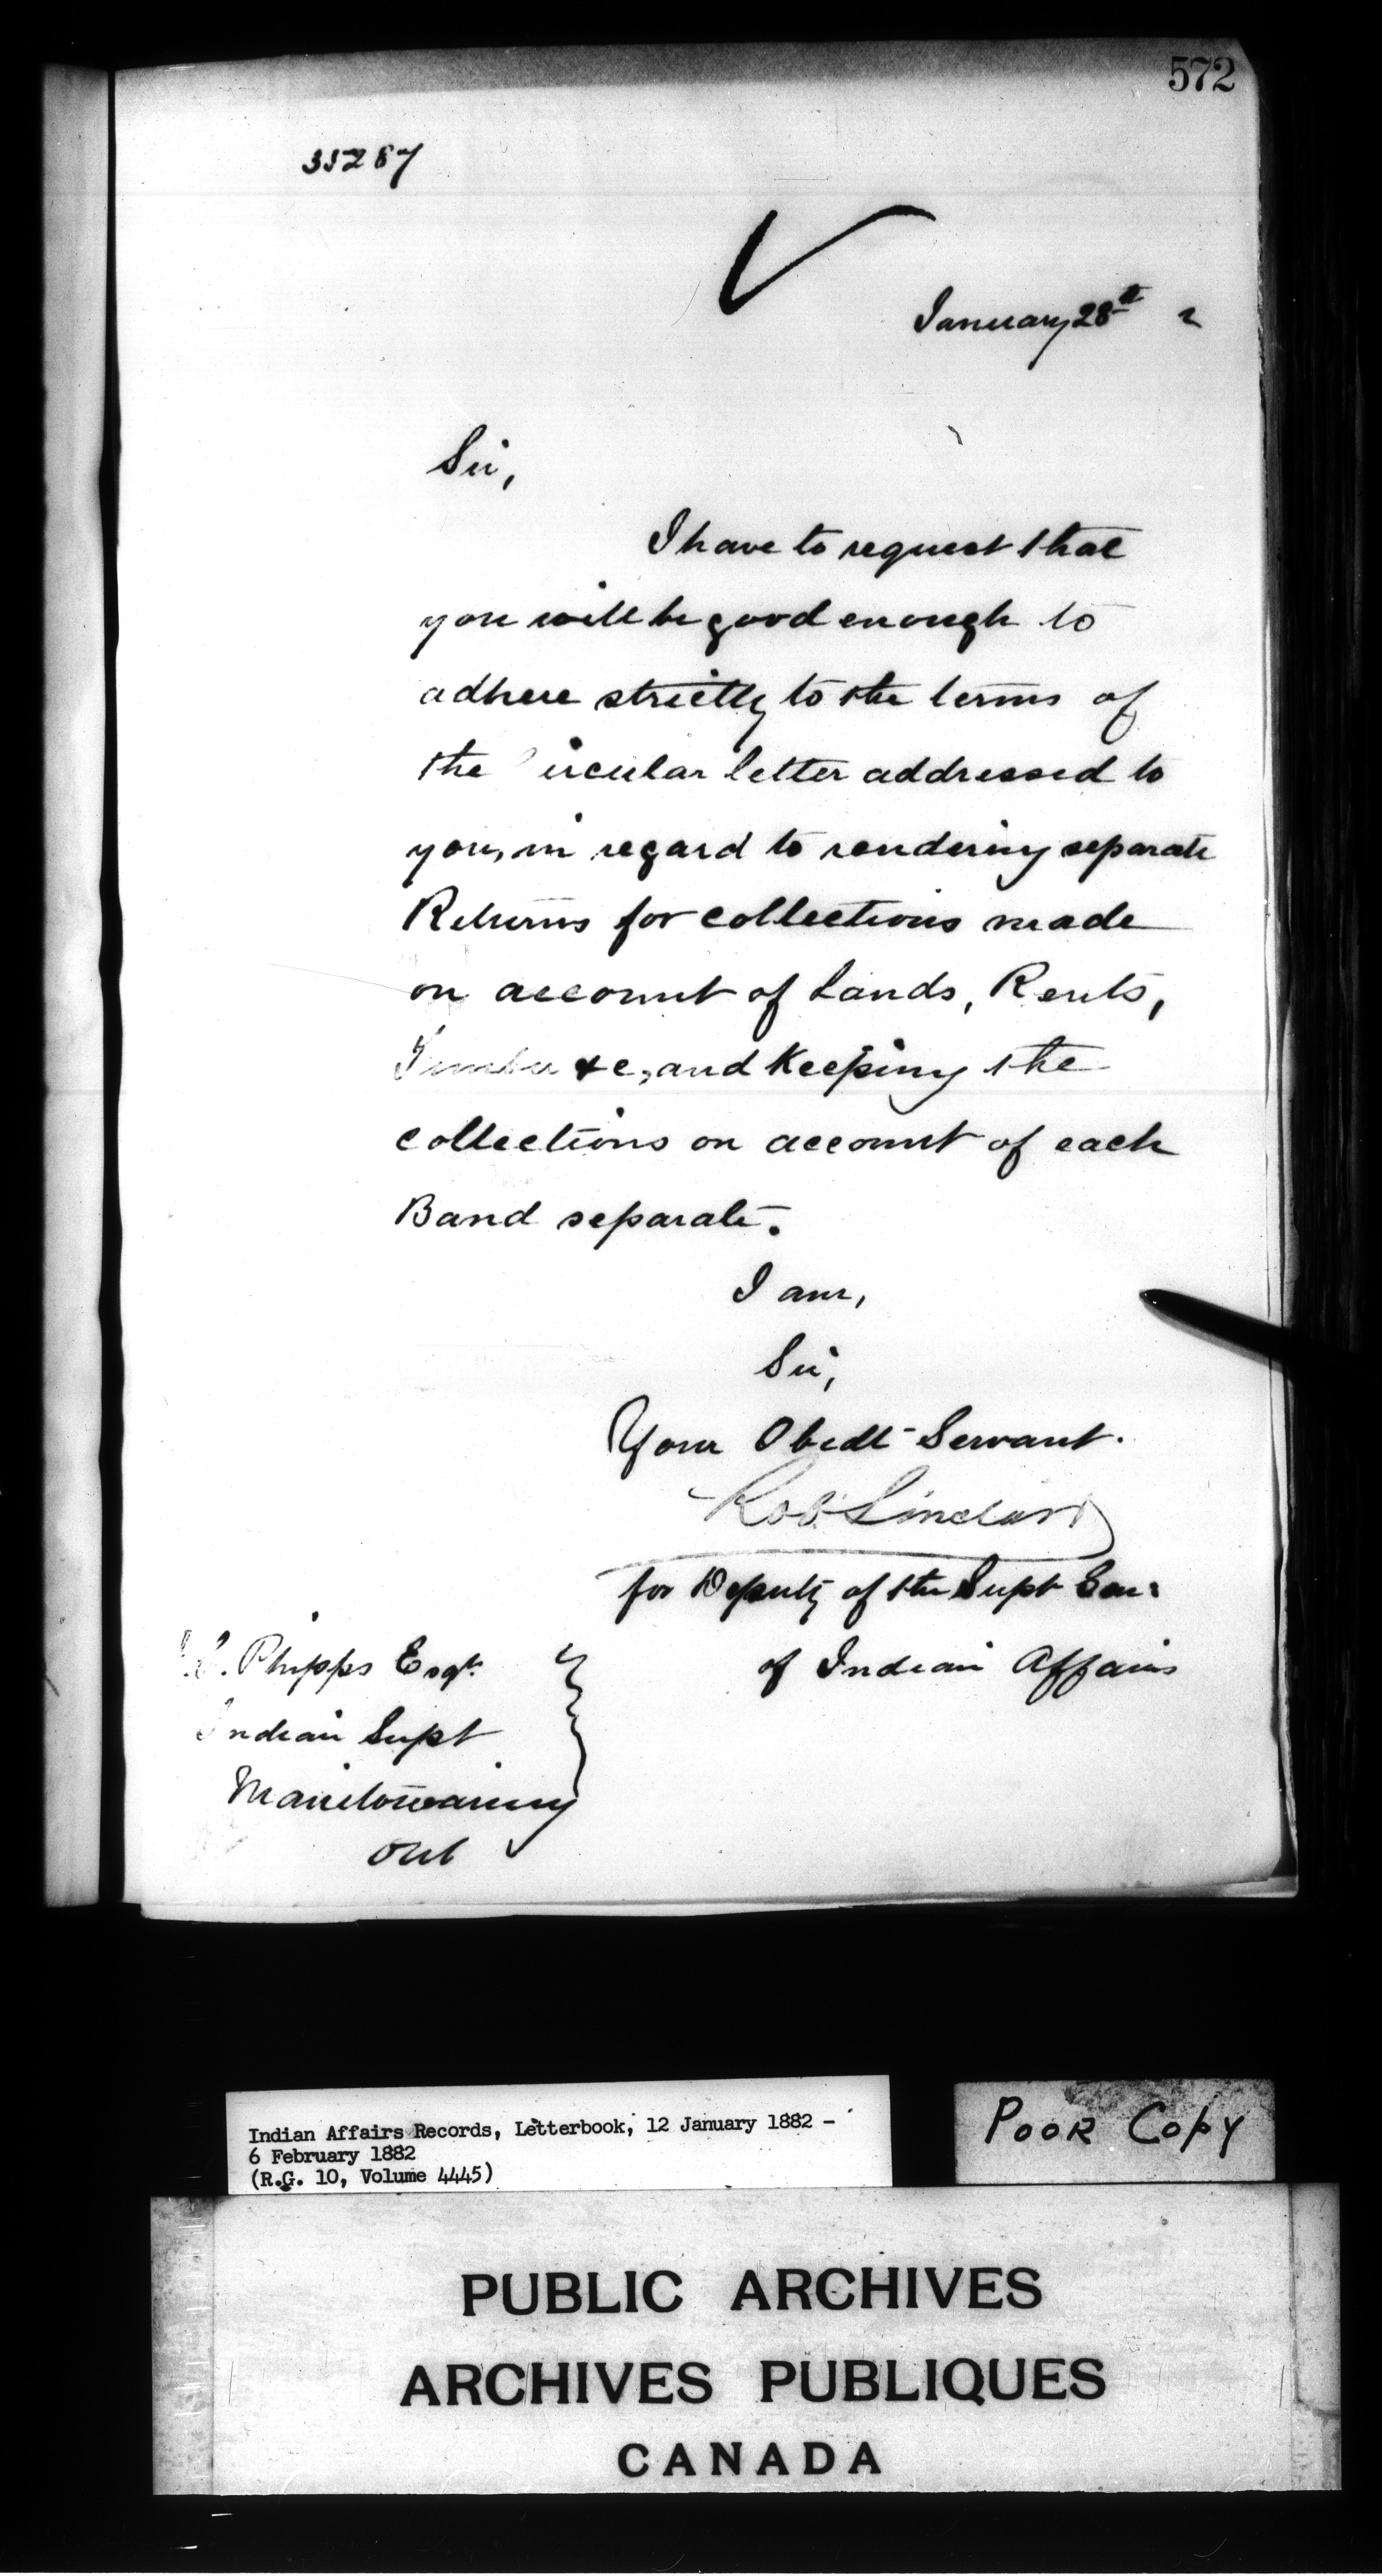 572
35287
January 28th 2
Sir,
I have to request that
you will be good enough to
adhere strictly to the terms of
the Circular letter addressed to
you, in regard to rendering separate
Returns for collections made
on account of Lands, Rents,
Timber &c, and keeping the
collections on account of each
Band separate.
I am,
Sir,
Your Obedt Servant.
Robt Sinclair
for Deputy of the Supt Gen:
of Indian Affairs
C. Phipps Esqr.
Indian Supt
Manitowaning
Ont
Indian Affairs Records, Letterbook, 12 January 1882 -
6 February 1882
(R.G. 10, Volume 4445)
POOR COPY
PUBLIC ARCHIVES
ARCHIVES PUBLIQUES
CANADA